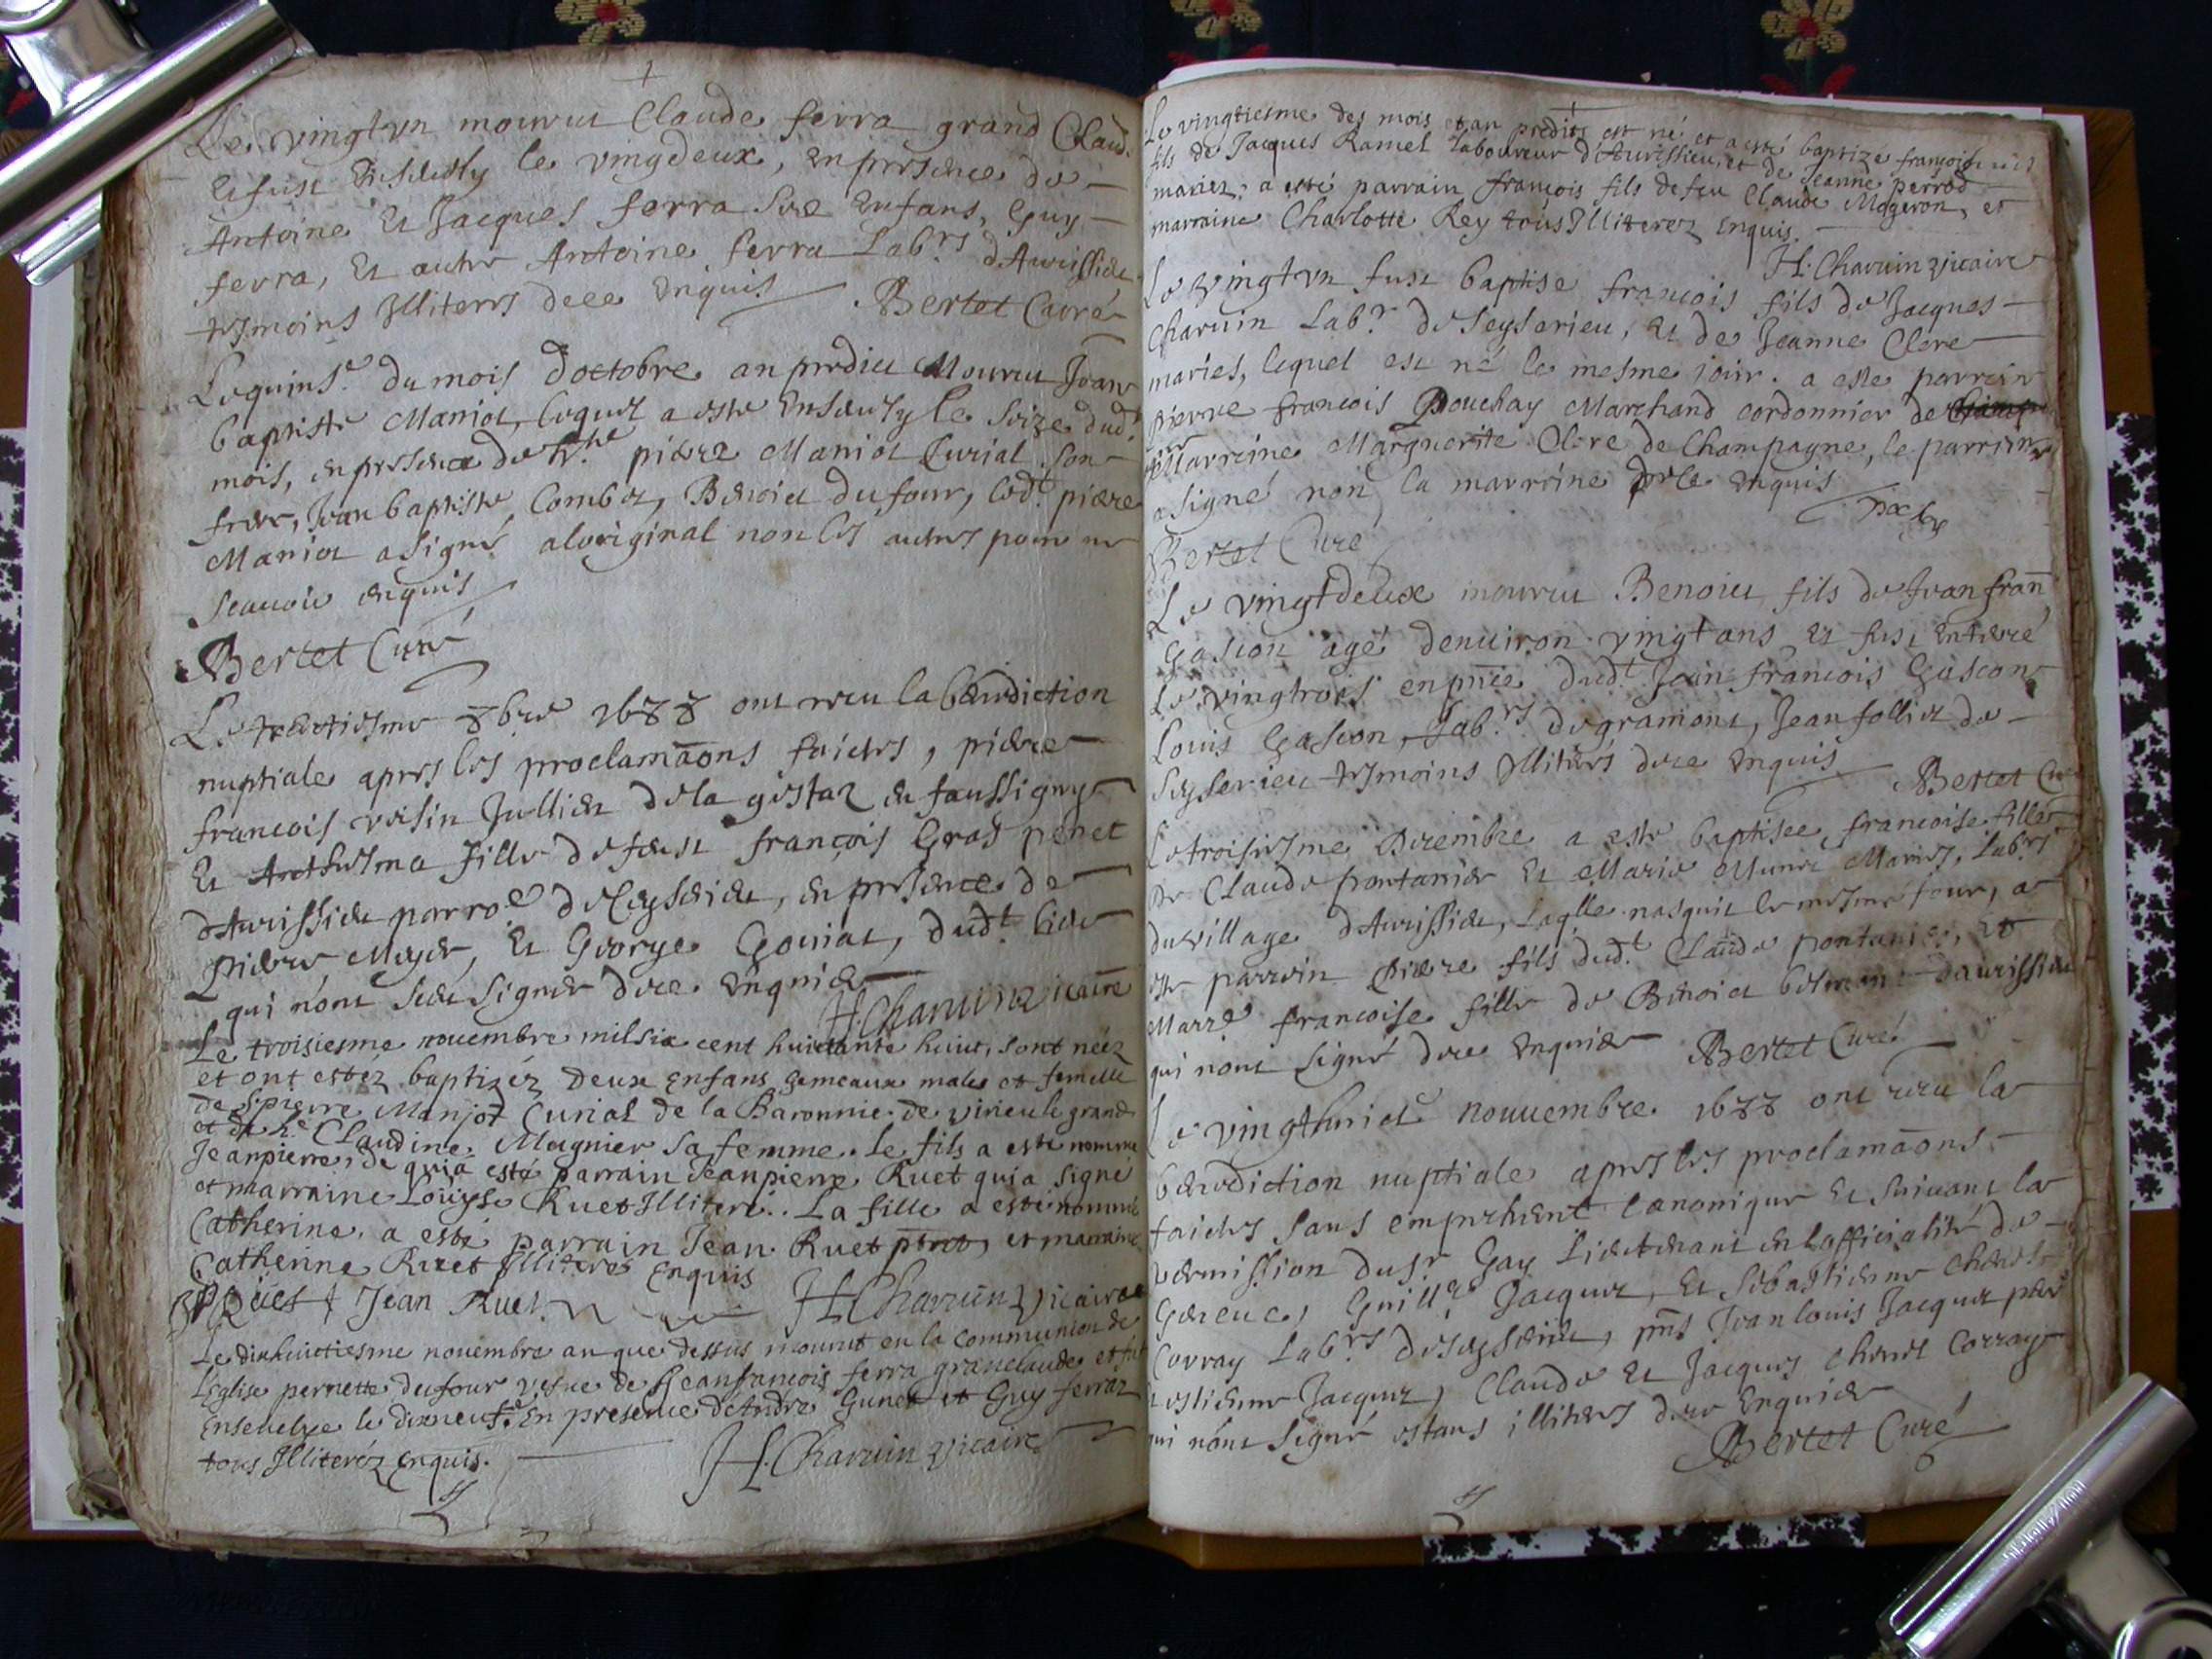 Le vingtvn mourut Claude ferra grand Claud.
Et fust ensevely le vingdeux, en presence de
Antoine et Jacques ferra ses enfans, Guy
ferra, et autre Antoine ferra Lab.rs dAurissieu
tesmoins Illiters dece enquis Bertet Curé
Le quins.e du mois doctobre an predict Mourut Jean
baptiste Maniot, lequel a este ensevely le seize dud.t
mois, en presence de h.ble pierre Maniot Curial son
frere, Jean baptiste Combet, Benoict dufour, led.t pierre
Maniot a signé aloriginal non les autres pour ne
scavoir enquis
Bertet Curé
Le trentiesme 8bre 1688 ont receu la benediction
nuptiale apres les proclamaons faictes, pierre
francois voisin Jullien de la gietaz en faussigny
Et Anthelma fille de feust françois Gras penet
dAurissieu parroe de Ceyserieu, en presence de
pierre Meyer, et George Goniat, dud.t lieu
qui nont sceu signer dece enquier
H Charuin vicaire
Le troisiesme nouembre mil six cent huictante huict, sont néez
et ont estez baptizéz deux enfans gemeaux male et femelle
de s.r pierre Manjot Curial de la Baronnie de virieu le grand
et de h.e Claudine Mugnier sa femme. Le fils a esté nommé
Jeanpierre, de qui a esté parrain Jeanpierre Ruet qui a signé
et marraine Loüyse Ruet Illiteré. La fille a esté nommé
Catherine, a esté parrain Jean Ruet et marraine
Catherine Ruet Illiterés Enquis
JP Rüet Jean Ruet H. Charuin vicaire
Le dixhuictiesme nouembre an que dessus mourut en la communion de
Léglise pernette dufour vefue de Jeanfrançois ferra granclaude et fut
Enseuelye le dixneuf.e En presence dAndré Gunet et Guy ferraz
tous Illiteréz Enquis. H. Charuin vicaire
Le vingtiesme des mois et an predits est né et a esté baptizé françois
fils de Jacques Ramel laboureur dAurissieu, et de Jeanne perrod
mariez; a esté parrain françois fils de feu Claude Mogeron, et
marraine Charlotte Rey tous Illiterez enquis.
H. Charuin vicaire
Le vingtvn fust baptise francois fils de Jacques
Charuin Lab.r de Seyserieu, et de Jeanne Clere
maries, lequel est né le mesme iour. a este parrein
pierre francois Bouchay Marchand cordonnier de
Marreine Marguerite Clere de Champagne, le parrein
a signé non la marreine dece enquis
Bertet Curé
Le vingtdeux mourut Benoict fils de Jean fran
Gascon agé denuiron vingt ans et fust enterré
Le vingtrois en pnce dud.t Jean francois Gascon
Louis Gascon, Lab.rs de gramont, Jean folliet de
Seyserieu tesmoins Illiters dece enquis Bertet Cu
Le troisiesme Decembre a este baptisee francoise fille
de Claude pontanier et Marie Munet Maries, Lab.rs
du village dAurissieu, Laqlle nasquit le mesme jour, a
este parrein pierre fils dud.t Claude pontanier, et
Marre francoise fille de Benoict daurissieu
qui nont signé dece enquier Bertet Curé
Le vingthuict nouuembre 1688 ont receu la
benediction nuptiale apres les proclamaons
faictes sans empechement canonique et suivant la
permission du sr Gay Lieutenant en lofficialité de
Geneue, Guill.e Jacquet, et Sebastienne
Corray Lab.rs de seyserieu, pnts Jean louis Jacquet
estienne Jacquet, Claude et Jacques Corray
qui nont signé estans illiters dece Enquier
Bertet Curé